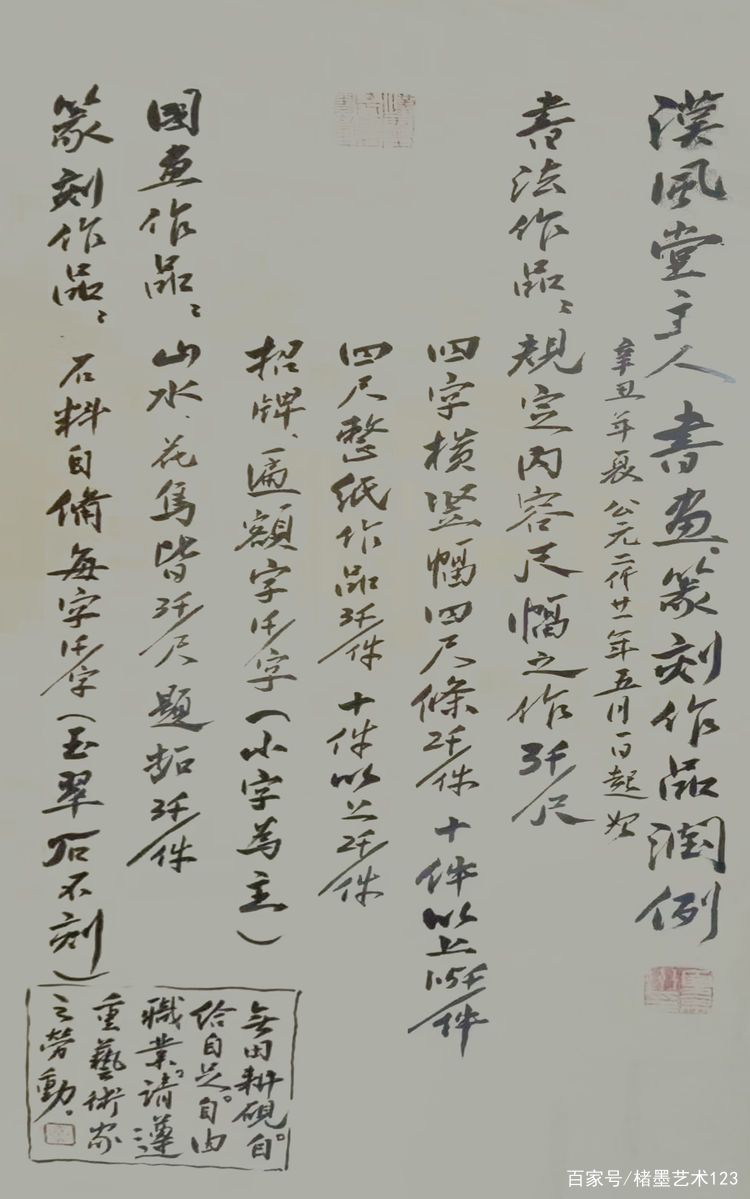 漢風堂主人書画篆刻作品潤例
辛丑年夏公元二仟廿一年五月一日起始
書法作品：規定内容尺幅之作3千/尺
四字横竖幅四尺條2千/件 十件以上1.5千/件
四尺整纸作品3千/件 十件以上2千/件
招牌、匾額字1千/字（小字為主）
國画作品：山水、花鳥皆3千/尺 題拓3千/件
篆刻作品：石料自備每字1千/字（玉翠石不刻）
無田耕硯自。
给自足。自由
職業。請遵
重藝術家
之勞動。
百家号/楮墨艺术123